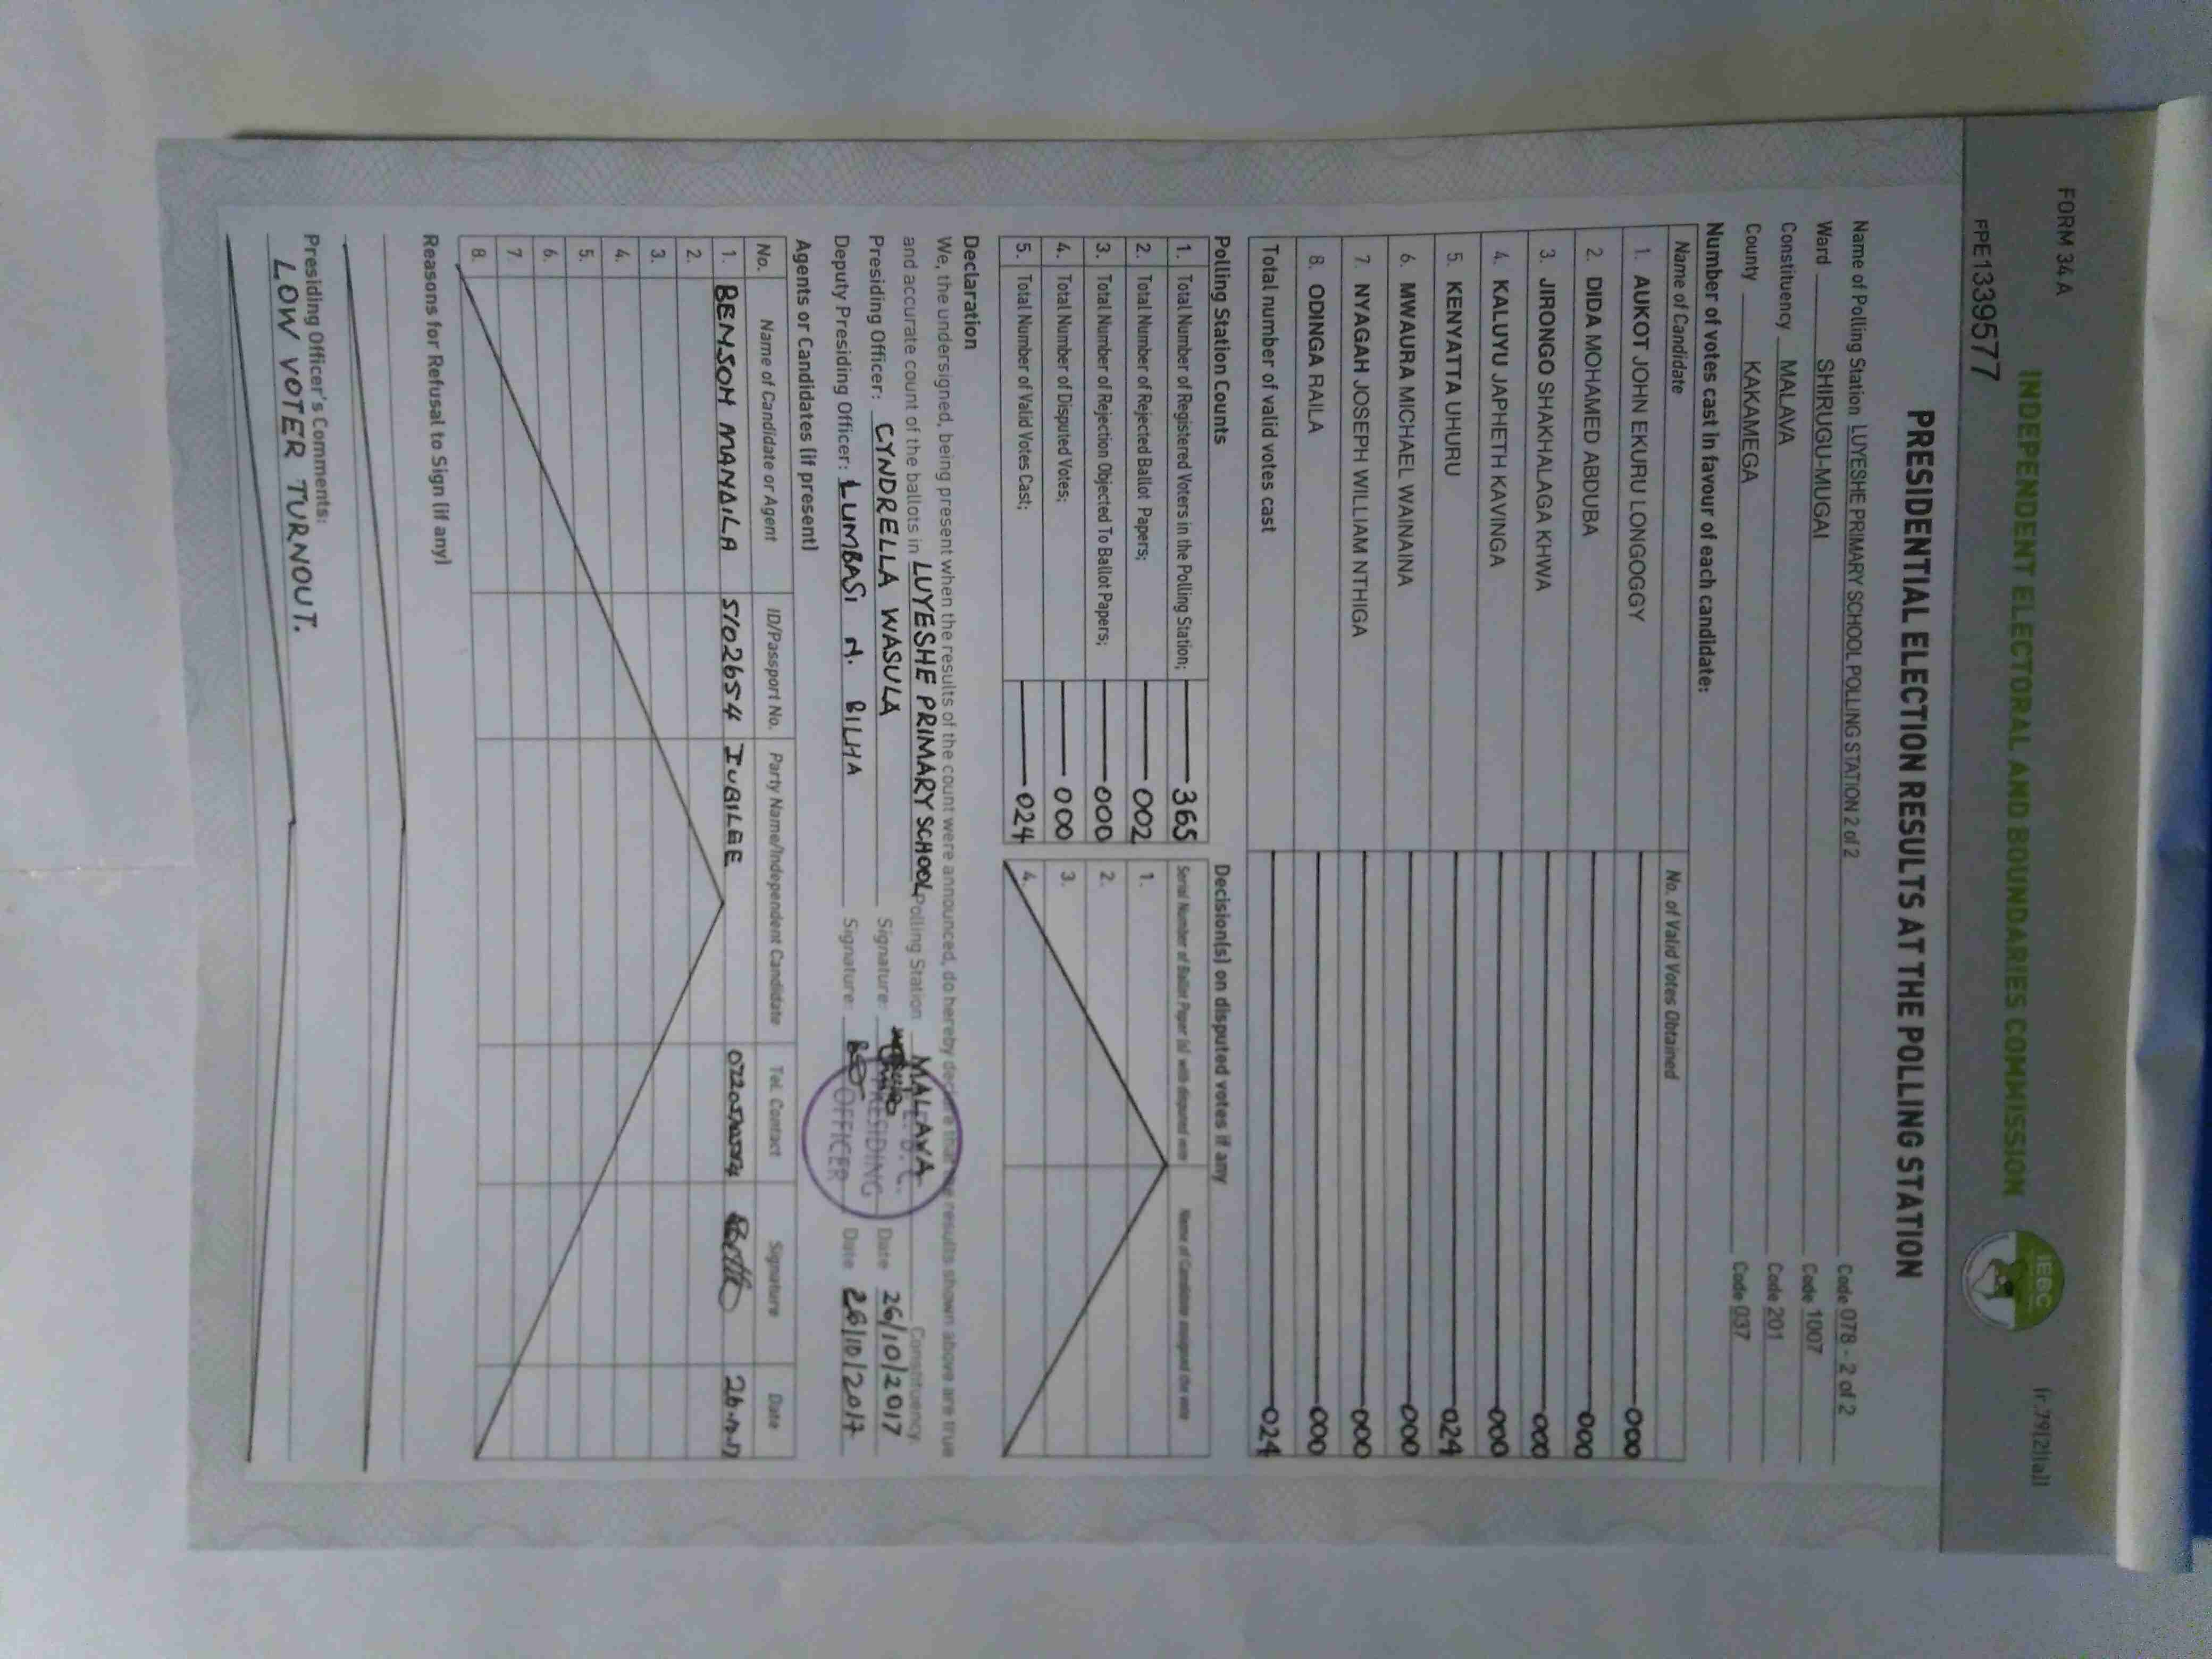 FORM 34 A
(r.79(2)(a))
INDEPENDENT ELECTORAL AND BOUNDARIES COMMISSION
IEBC
FPE1339577
PRESIDENTIAL ELECTION RESULTS AT THE POLLING STATION
Name of Polling Station LUYESHE PRIMARY SCHOOL POLLING STATION 2 of 2 Code 078 - 2 of 2
Ward SHIRUGU-MUGAI Code 1007
Constituency MALAVA Code 201
County KAKAMEGA Code 037
Number of votes cast in favour of each candidate:
Name of Candidate No. of Valid Votes Obtained
1. AUKOT JOHN EKURU LONGOGGY 000
2. DIDA MOHAMED ABDUBA 000
3. JIRONGO SHAKHALAGA KHWA 000
4. KALUYU JAPHETH KAVINGA 000
5. KENYATTA UHURU 024
6. MWAURA MICHAEL WAINAINA 000
7. NYAGAH JOSEPH WILLIAM NTHIGA 000
8. ODINGA RAILA 000
Total number of valid votes cast 024
Polling Station Counts Decision(s) on disputed votes if any
1. Total Number of Registered Voters in the Polling Station; 365 Serial Number of Ballot Paper (s) with disputed vote Name of Candidate assigned the vote
2. Total Number of Rejected Ballot Papers; 002 1.
3. Total Number of Rejection Objected To Ballot Papers; 000 2.
4. Total Number of Disputed Votes; 000 3.
5. Total Number of Valid Votes Cast; 024 4.
Declaration
We, the undersigned, being present when the results of the count were announced, do hereby declare that the results shown above are true
and accurate count of the ballots in LUYESHE PRIMARY SCHOOL Polling Station MALAVA Constituency.
Presiding Officer: CYNDRELLA WASULA Signature: Date 26/10/2017
Deputy Presiding Officer: LUMBASI N. BILHA Signature: Date 26/10/2017
PRESIDING
OFFICER
Agents or Candidates (if present)
No. Name of Candidate or Agent ID/Passport No. Party Name/Independent Candidate Tel. Contact Signature Date
1. BENSON MANDILA 5102654 JUBILEE
2.
3.
4.
5.
6.
7.
8.
Reasons for Refusal to Sign (if any)
Presiding Officer's Comments:
LOW VOTER TURNOUT.